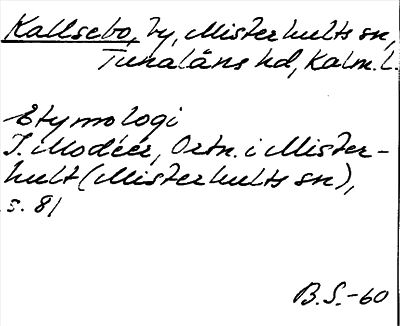 Kallsebo, by, Misterhults sn,
Tunaläns hd, Kalm. l.
Etymologi
I. Modéer, Ortn. i Mister-
hult (Misterhults sn),
s. 81
B.S.-60